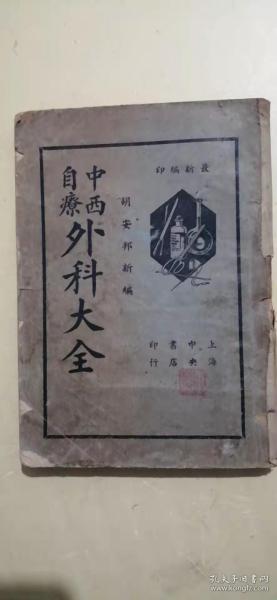 最新編印
胡安邦新編
中西
自療
外科大全
上海
中央
書店
印行
孔夫子旧书网